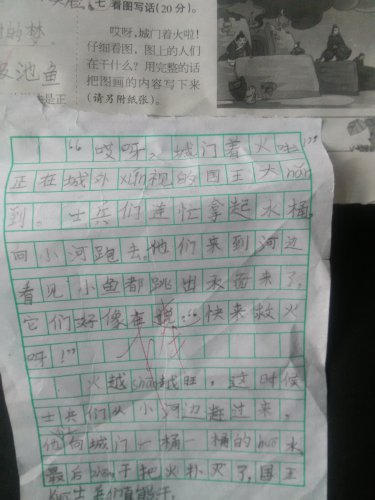 七 看图写话(20分)。
哎呀,城门着火啦!
仔细看图,图上的人们
在干什么?用完整的话
把图画的内容写下来
(请另附纸张)。
的梦
池鱼
是正
“哎呀、城门着火啦”
正在城外xún视的国王大hǎn
到。士兵们连忙拿起水桶,
向小河跑去。他们来到河边
看见小鱼都跳出水面来了,
它们好像在说:“快来救火
呀!”
火越shāo越旺,这时候
士兵们从小河边赶过来,
他向城门一桶一桶的水
最后子把火扑灭了,国王
士兵们